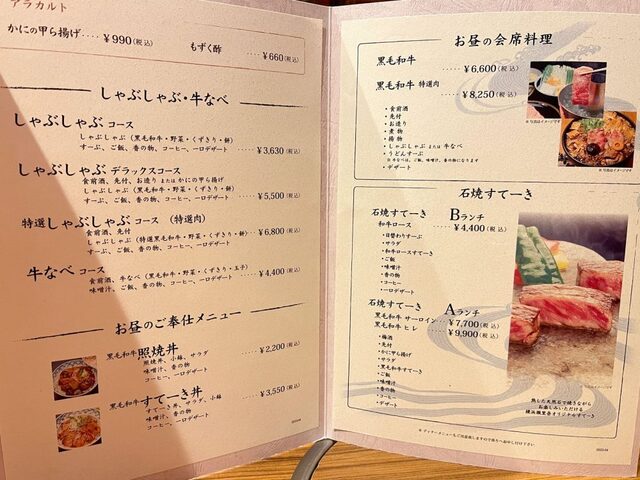 アラカルト
かにの甲ら揚げ‥‥¥990(税込)
もずく酢 ‥‥¥660(税込)
しゃぶしゃぶ・牛なべ
しゃぶしゃぶ コース
しゃぶしゃぶ(黒毛和牛・野菜・くずきり・餅)
すーぷ、ご飯、香の物、コーヒー、一口デザート ‥‥¥3,630(税込)
しゃぶしゃぶ デラックスコース
食前酒、先付、お造り または かにの甲ら揚げ
しゃぶしゃぶ(黒毛和牛・野菜・くずきり・餅)
すーぷ、ご飯、香の物、コーヒー、一口デザート ‥‥¥5,500(税込)
特選しゃぶしゃぶ コース (特選肉)
食前酒、先付
しゃぶしゃぶ(特選黒毛和牛・野菜・くずきり・餅)‥¥6,800(税込)
すーぷ、ご飯、香の物、コーヒー、一口デザート
牛なべ コース
食前酒、牛なべ(黒毛和牛・野菜・くずきり・玉子)‥¥4,400(税込)
味噌汁、ご飯、香の物、コーヒー、一口デザート
お昼のご奉仕メニュー
黒毛和牛 照焼丼 ‥‥¥2,200(税込)
照焼丼、小鉢、サラダ
味噌汁、香の物
コーヒー、一口デザート
黒毛和牛 すてーき丼 ‥‥¥3,550(税込)
すてーき丼、サラダ、小鉢
味噌汁、香の物
コーヒー、一口デザート
お昼の会席料理
黒毛和牛 ‥‥¥6,600(税込)
黒毛和牛 特選肉 ‥‥¥8,250(税込)
・食前酒
・先付
・お造り
・煮物
・揚物
・しゃぶしゃぶ または 牛なべ
・うどんすーぷ
※牛なべは、ご飯、味噌汁、香の物になります
・デザート
※写真はイメージです
※写真はイメージです
石焼すてーき
石焼すてーき Bランチ
和牛ロース ‥‥¥4,400(税込)
・日替わりすーぷ
・サラダ
・和牛ロースすてーき
・ご飯
・味噌汁
・香の物
・コーヒー
・一口デザート
石焼すてーき Aランチ
黒毛和牛 サーロイン‥¥7,700(税込)
黒毛和牛 ヒレ ‥‥¥9,900(税込)
・梅酒
・先付
・かに甲ら揚げ
・サラダ
・黒毛和牛すてーき
・ご飯
・味噌汁
・香の物
・コーヒー
・デザート
※写真はイメージです
熱した天然石で焼きながら
お楽しみいただける
横浜瀬里奈オリジナルすてーき
※ディナーメニューもご用意致しますので係りへお申し付け下さい